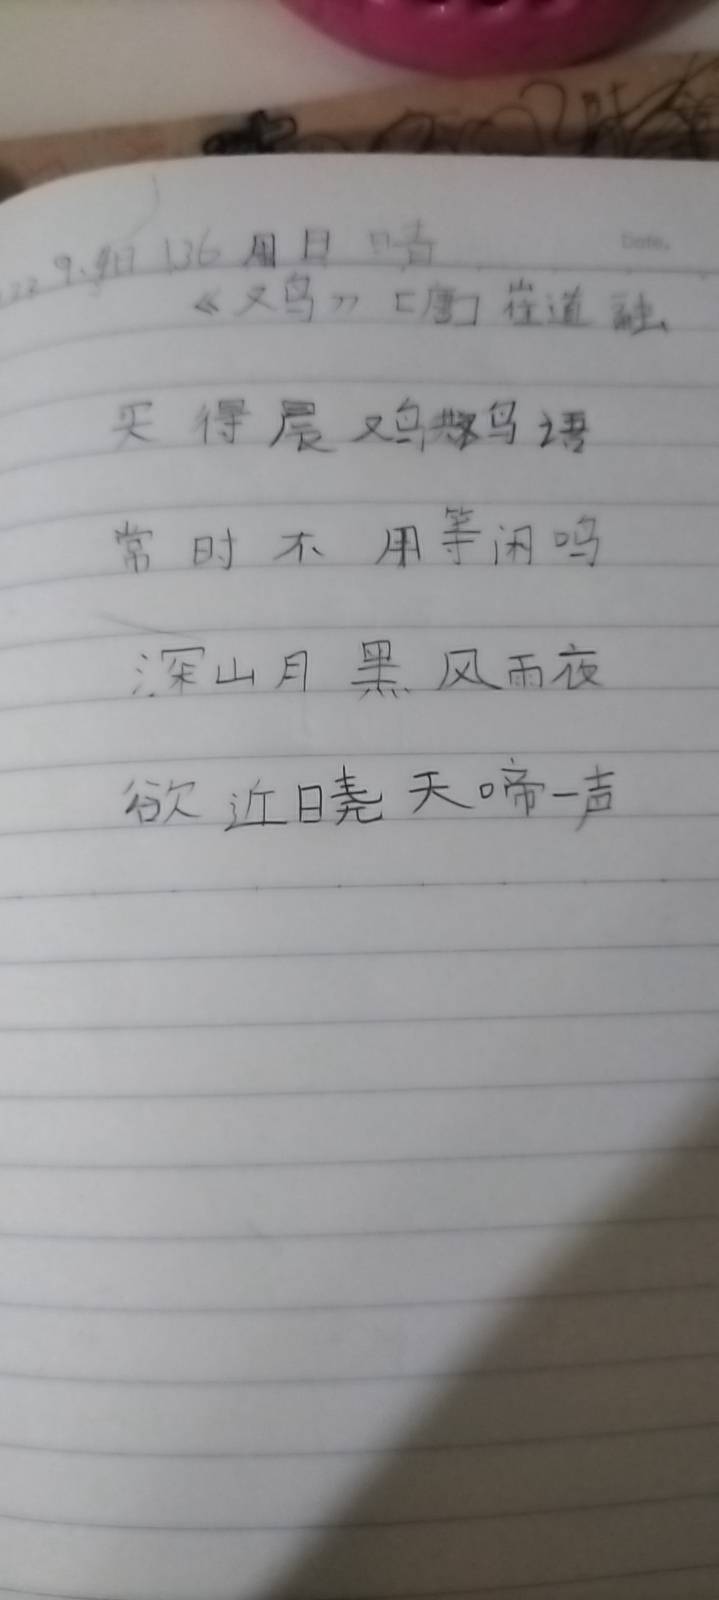 22 9.4日 136 周日 晴
Date.
《鸡》[唐]崔道融
买得晨鸡鸡语
常时不用等闲鸣
深山月黑风雨夜
欲近晓天啼一声